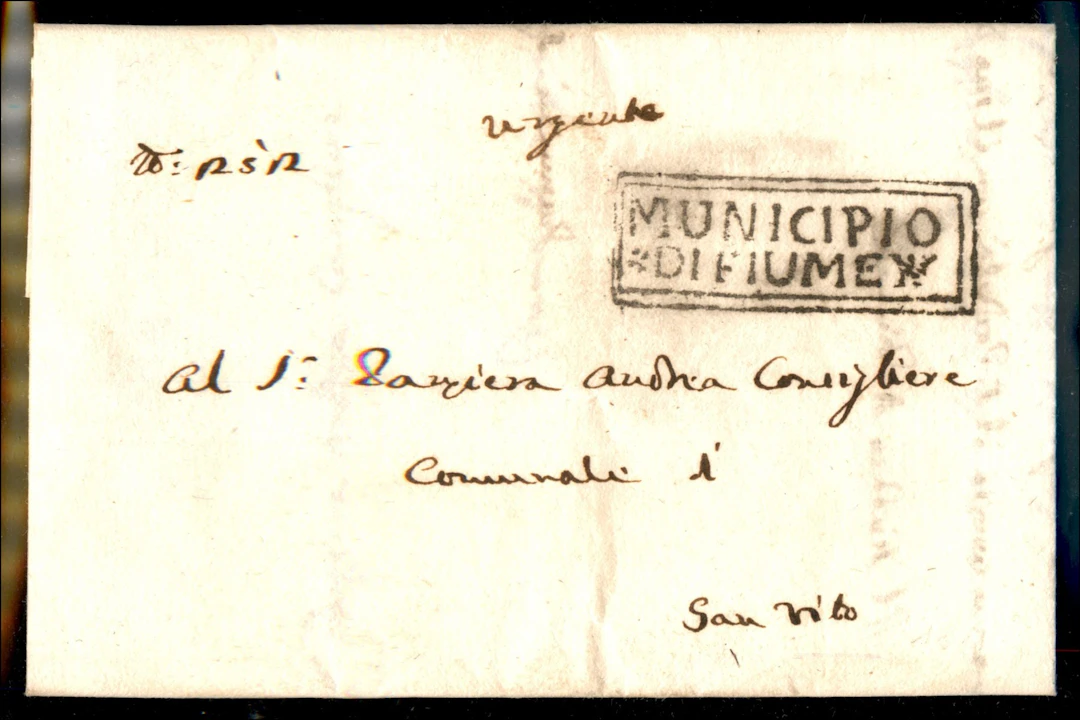 urgente
MUNICIPIO
DI FIUME
Al S.r Andrea Consigliere
Comunale di
San Vito